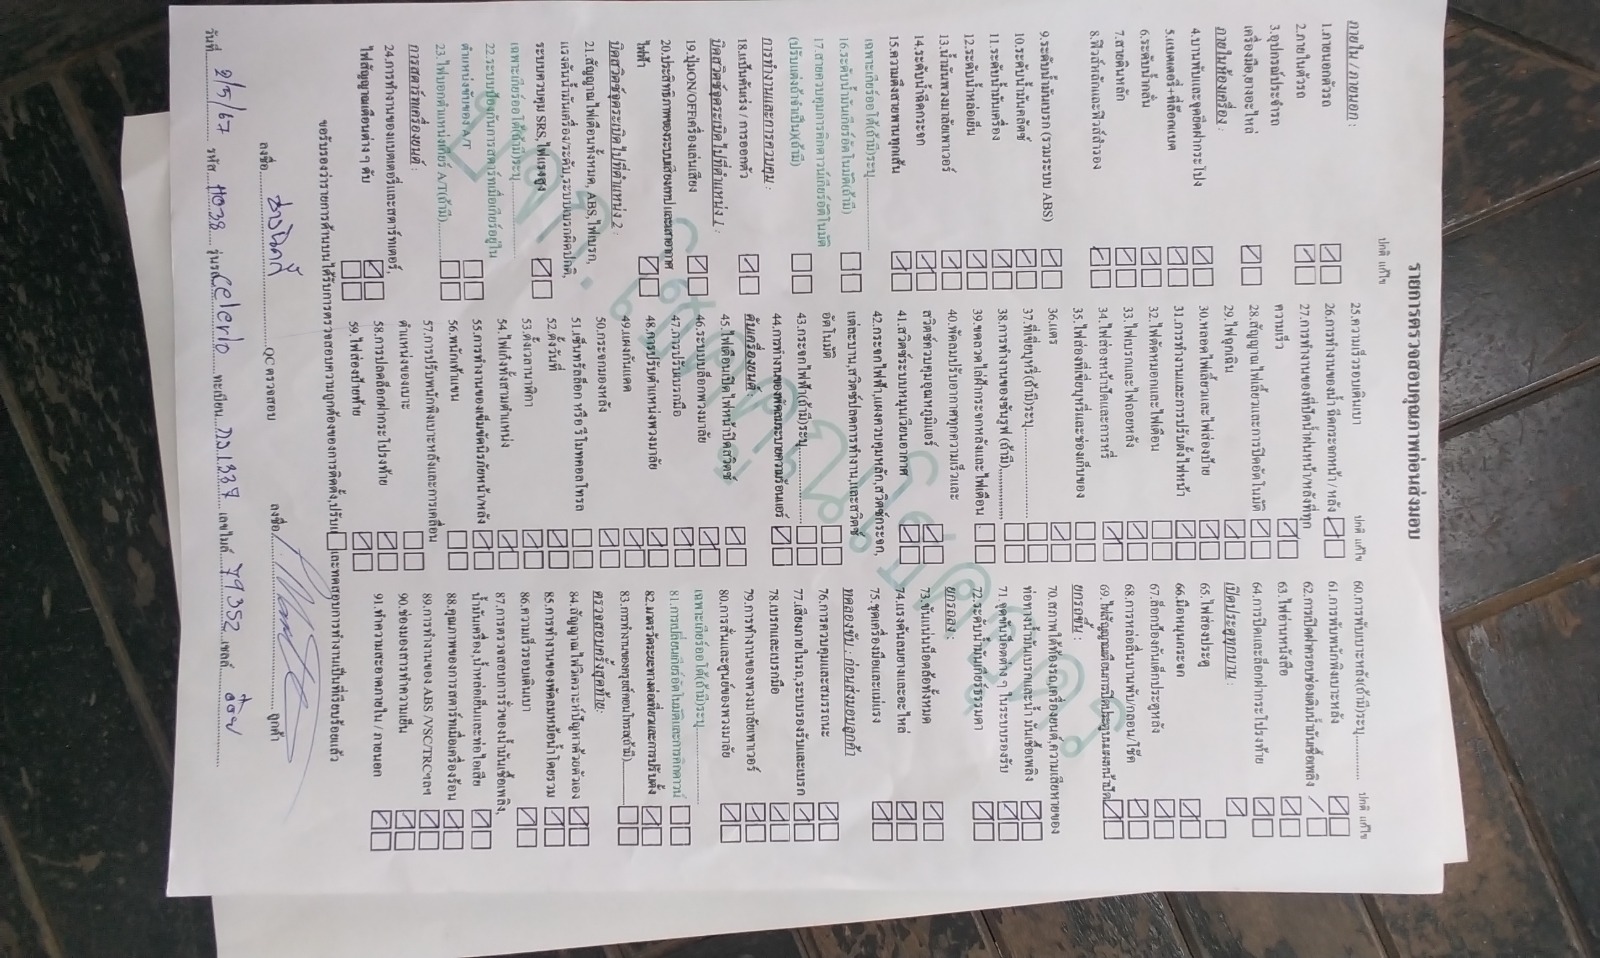 รายการตรวจสอบคุณภาพก่อนส่งมอบ
ปกติ แก้ไข
ภายใน / ภายนอก :
1.ภายนอกตัวรถ
2.ภายในตัวรถ
3.อุปกรณ์ประจำรถ
เครื่องมือ,ยางอะไหล่
ภายในห้องเครื่อง :
4.บานพับและจุดยึดฝากระโปง
5.แบตเตอรี่+ที่ล็อกแบต
6.ระดับน้ำกลั่น
7.สายดินหลัก
8.ฟิวส์หลักและฟิวส์สำรอง
9.ระดับน้ำมันเบรก (รวมระบบ ABS)
10.ระดับน้ำมันคลัตซ์
11.ระดับน้ำมันเครื่อง
12.ระดับน้ำหล่อเย็น
13.น้ำมันพวงมาลัยเพาเวอร์
14.ระดับน้ำฉีดกระจก
15.ความตึงสายพานทุกเส้น
เฉพาะเกียร์ออโต้(ถ้ามี)ระบุ............
16.ระดับน้ำมันเกียร์อัตโนมัติ(ถ้ามี)
17.สายควบคุมการคิกดาวน์เกียร์อัตโนมัติ
(ปรับแต่งถ้าจำเป็น)(ถ้ามี)
การทำงานและการควบคุม :
18.แป้นคันเร่ง / การออกตัว
บิดสวิตซ์จุดระเบิดไปที่ตำแหน่ง 1 :
19.ปุ่มON/OFFเครื่องเล่นเสียง
20.ประสิทธิภาพของระบบเสียงเทป และเสาอากาศ
ไฟฟ้า
บิดสวิตซ์จุดระเบิดไปที่ตำแหน่ง 2 :
21.สัญญาณไฟเตือนทั้งหมด, ABS,ไฟเบรก,
แรงดันน้ำมันเครื่อง/ระดับ,ระบบเบรกผิดปกติ,
ระบบควบคุม SRS,ไฟแรงสูง
เฉพาะเกียร์ออโต้(ถ้ามี)ระบุ............
22.ระบบป้องกันการสตาร์ทเมื่อเกียร์อยู่ใน
ตำแหน่งขับของ A/T
23.ไฟบอกตำแหน่งเกียร์ A/T(ถ้ามี)............
การสตาร์ทเครื่องยนต์ :
24.การทำงานของแบตเตอรี่และสตาร์ทเตอร์,
ไฟสัญญาณเตือนต่าง ๆ ดับ
ปกติ แก้ไข
25.ความเร็วรอบเดินเบา
26.การทำงานของน้ำ ฉีดกระจกหน้า / หลัง
27.การทำงานของที่ปัดน้ำฝนหน้า/หลังที่ทุก
ความเร็ว
28.สัญญาณไฟเลี้ยวและการปิดอัตโนมัติ
29.ไฟฉุกเฉิน
30.หลอดไฟเลี้ยวและไฟส่องป้าย
31.การทำงานและการปรับตั้งไฟหน้า
32.ไฟตัดหมอกและไฟเตือน
33.ไฟเบรกและไฟถอยหลัง
34.ไฟส่องหน้าปัดและการหรี่
35.ไฟส่องที่เขี่ยบุหรี่และช่องเก็บของ
36.แตร
37.ที่เขี่ยบุหรี่(ถ้ามี)ระบุ............
38.การทำงานของซันรูฟ (ถ้ามี)............
39.ขดลวดไล่ฝ้ากระจกหลังและไฟเตือน
40.พัดลมปรับอากาศทุกความเร็วและ
สวิตซ์ควบคุมอุณหภูมิแอร์
41.สวิตซ์ระบบหมุนเวียนอากาศ
42.กระจกไฟฟ้า,แผงควบคุมหลัก,สวิตซ์กระจก,
แต่ละบาน,สวิตซ์ปลดการทำงาน,และสวิตซ์
อัตโนมัติ
43.กระจกไฟฟ้า(ถ้ามี)ระบุ............
44.การทำงานของพัดลมระบายความร้อนแอร์
ดับเครื่องยนต์ :
45.ไฟเตือนเปิดไฟหน้าปิดสวิตซ์
46.ระบบล็อกพวงมาลัย
47.การปรับเบรกมือ
48.การปรับตำแหน่งพวงมาลัย
49.แผงกันแดด
50.กระจกมองหลัง
51.เซ็นทรัลล็อก หรือ รีโมทคอลโทรล
52.ตั้งวันที่
53.ตั้งเวลานาฬิกา
54.ไฟเก๋งทั้งสามตำแหน่ง
55.การทำงานของเข็มขัดนิรภัยหน้า/หลัง
56.พนักเท้าแขน
57.การปรับพนักพิงเบาะหลังและการเคลื่อน
ตำแหน่งของเบาะ
58.การปลดล็อกฝากระโปรงท้าย
59.ไฟส่องป้ายท้าย
ปกติ แก้ไข
60.การพับเบาะหลัง(ถ้ามี)ระบุ............
61.การพับพนักพิงเบาะหลัง
62.การเปิดฝาครอบช่องเติมน้ำมันเชื้อเพลิง
63.ไฟอ่านหนังสือ
64.การเปิดและล็อกฝากระโปรงท้าย
เปิดประตูทุกบาน :
65.ไฟส่องประตู
66.มือหมุนกระจก
67.ล็อกป้องกันเด็กประตูหลัง
68.การหล่อลื่นบานพับ/กลอน/โช๊ค
69.ไฟสัญญาณเตือนการปิดประตูบนแผงหน้าปัด
ยกรถขึ้น :
70.สภาพใต้ท้องรถ,เครื่องยนต์,ความเสียหายของ
ท่อทางน้ำมันเบรกและน้ำ มันเชื้อเพลิง
71.จุดขันน็อตต่าง ๆ ในระบบรองรับ
72.ระดับน้ำมันเกียร์ธรรมดา
ยกรถลง :
73.ขันแน่นน็อตล้อทั้งหมด
74.แรงดันลมยางและอะไหล่
75.ชุดเครื่องมือและแม่แรง
ทดลองขับ : ก่อนส่งมอบลูกค้า
76.การควบคุมและสมรรถนะ
77.เสียงภายในรถ,ระบบรองรับและเบรก
78.เบรกและเบรกมือ
79.การทำงานของพวงมาลัยเพาเวอร์
80.การสั่นและศูนย์ของพวงมาลัย
เฉพาะเกียร์ออโต้(ถ้ามี)ระบุ............
81.การเปลี่ยนเกียร์อัตโนมัติและการคิกดาวน์
82.มาตรวัดระยะทางต่อเที่ยวและการปรับตั้ง
83.การทำงานของครุยส์คอนโทรล(ถ้ามี)............
ตรวจสอบครั้งสุดท้าย:
84.สัญญาณไฟวิเคราะห์ปัญหาด้วยตัวเอง
85.การทำงานของพัดลมหม้อน้ำโดยรวม
86.ความเร็วรอบเดินเบา
87.การตรวจสอบการรั่วของน้ำมันเชื้อเพลิง,
น้ำมันเครื่อง,น้ำหล่อเย็นและท่อไอเสีย
88.คุณภาพของการสตาร์ทเมื่อเครื่องร้อน
89.การทำงานของ ABS /VSC/TRCฯลฯ
90.ช่องมองสารทำความเย็น
91.ทำความสะอาดภายใน / ภายนอก
ขอรับรองว่ารายการด้านบนได้รับการตรวจสอบความถูกต้องของการติดตั้ง,ปรับแ และทดสอบการทำงานเป็นที่เรียบร้อยแล้ว
ลงชื่อ............QC ตรวจสอบ ลงชื่อ............ลูกค้า
วันที่ 2/5/67 รหัส H038 รุ่นรถ celerio ทะเบียน กง1337 เลขไมล์ 79352 เซลล์ ต้อย